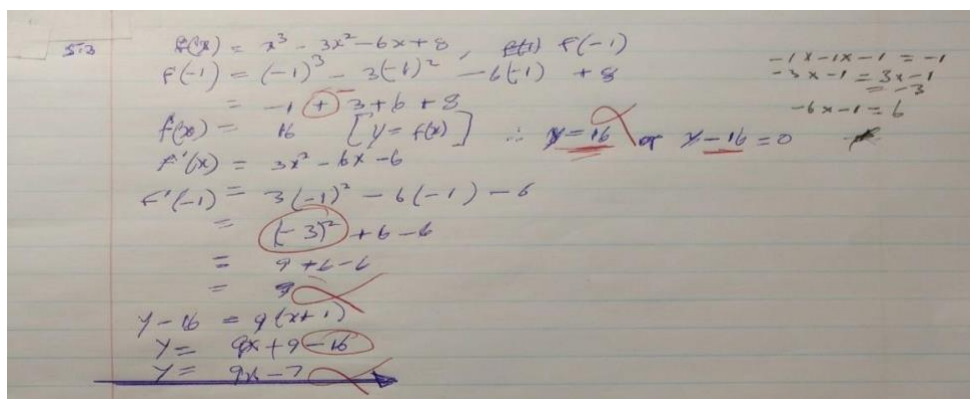 5.3 f(x) = x³ - 3x² - 6x + 8, f(-1)
f(-1) = (-1)³ - 3(-1)² - 6(-1) + 8
= -1 + 3 + 6 + 8
f(x) = 16 [y = f(x)] ∴ y = 16 or y - 16 = 0
f'(x) = 3x² - 6x - 6
f'(-1) = 3(-1)² - 6(-1) - 6
= (-3)² + 6 - 6
= 9 + 6 - 6
= 9
y - 16 = 9(x + 1)
y = 9x + 9 - 16
y = 9x - 7
-1 x -1 x -1 = -1
-3 x -1 = 3 x -1
= -3
-6 x -1 = 6